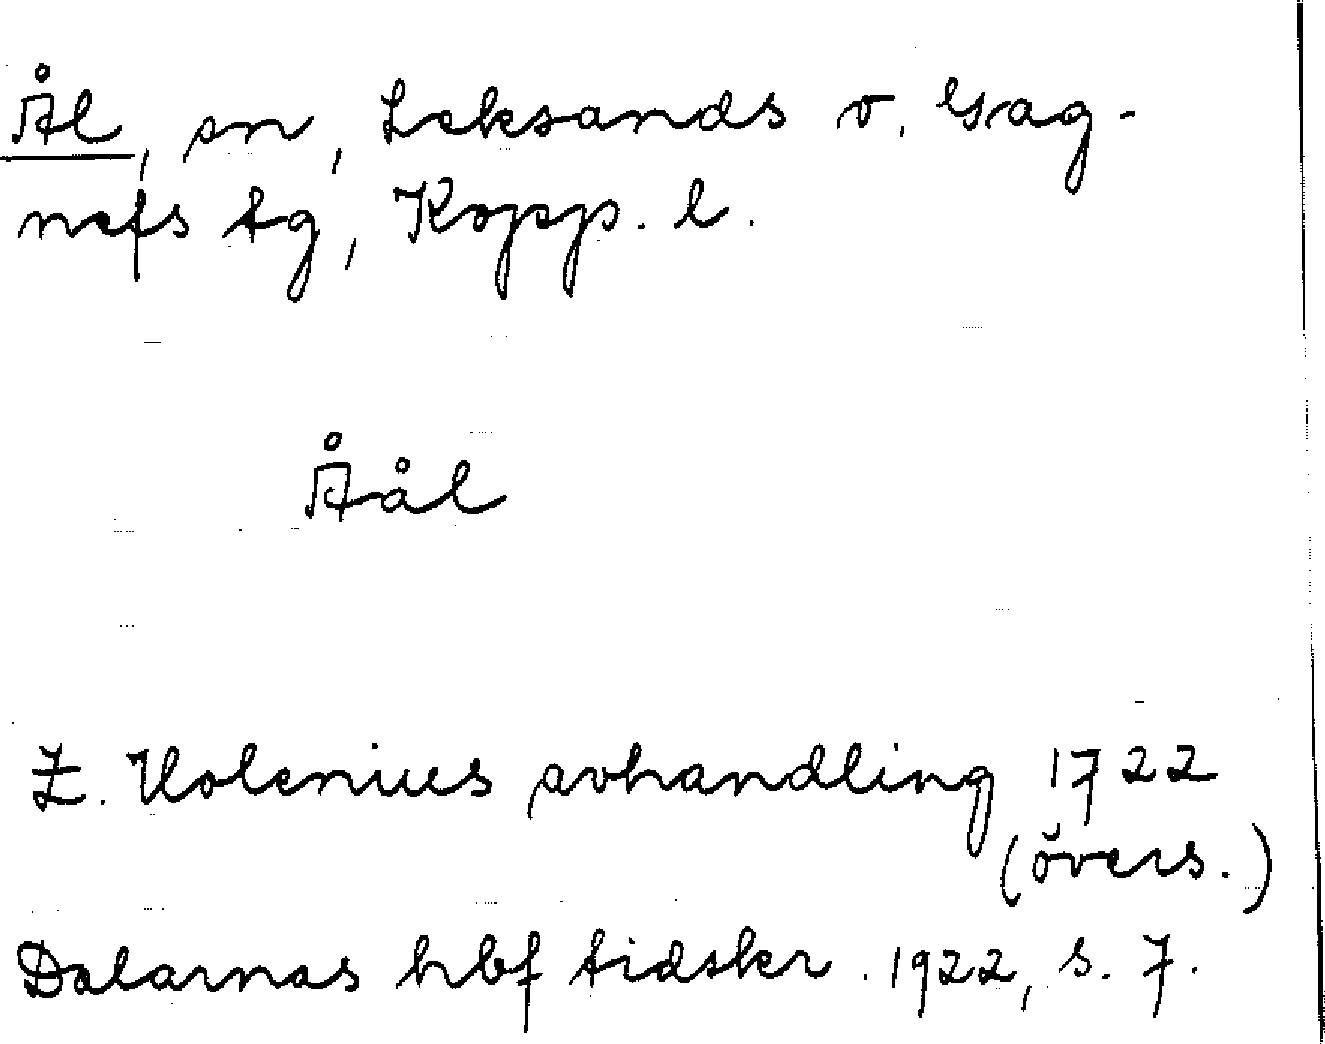 Ål, sn, Leksands o. Gag-
nefs tg, Kopp. l.
Åål
Z. Holenius avhandling 1722
(övers.)
Dalarnas hbf tidskr. 1922, s. 7.